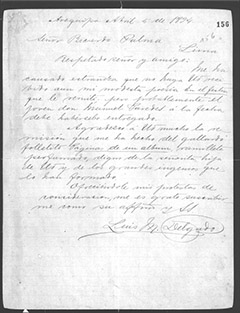 156
Arequipa Abril 4 de 1894
Señor Ricardo Palma
Lima
Respetado señor y amigo:
Me ha
causado estrañeza que no haya Ud reci
bido aun mi modesta poesía
que le remití, pero probablemente el
joven don Manuel a la fecha
debe habérsela entregado.
Agradezco á Ud mucho la re
misión que me ha hecho del gallardo
folletito Página de un album,
perfumado, digno de la señorita hija
de Ud y de los grandes ingenios que
lo han formado
Ofreciéndole mis protestas de
consideración, me es grato suscribir
me como su affmo y SS
Luis M. Delgado